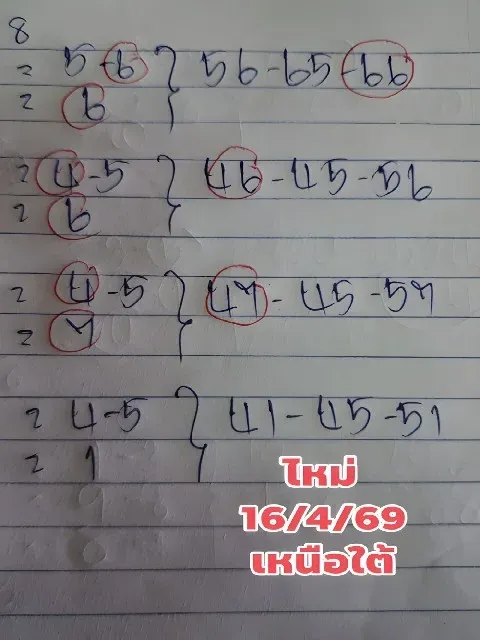 8
= 5-6 } 56-65-66
2 6
2 4-5 } 46-45-56
2 6
2 4-5 } 47-45-57
= 7
2 4-5 } 41-45-51
2 1
ใหม่
16/4/69
เหนือใต้